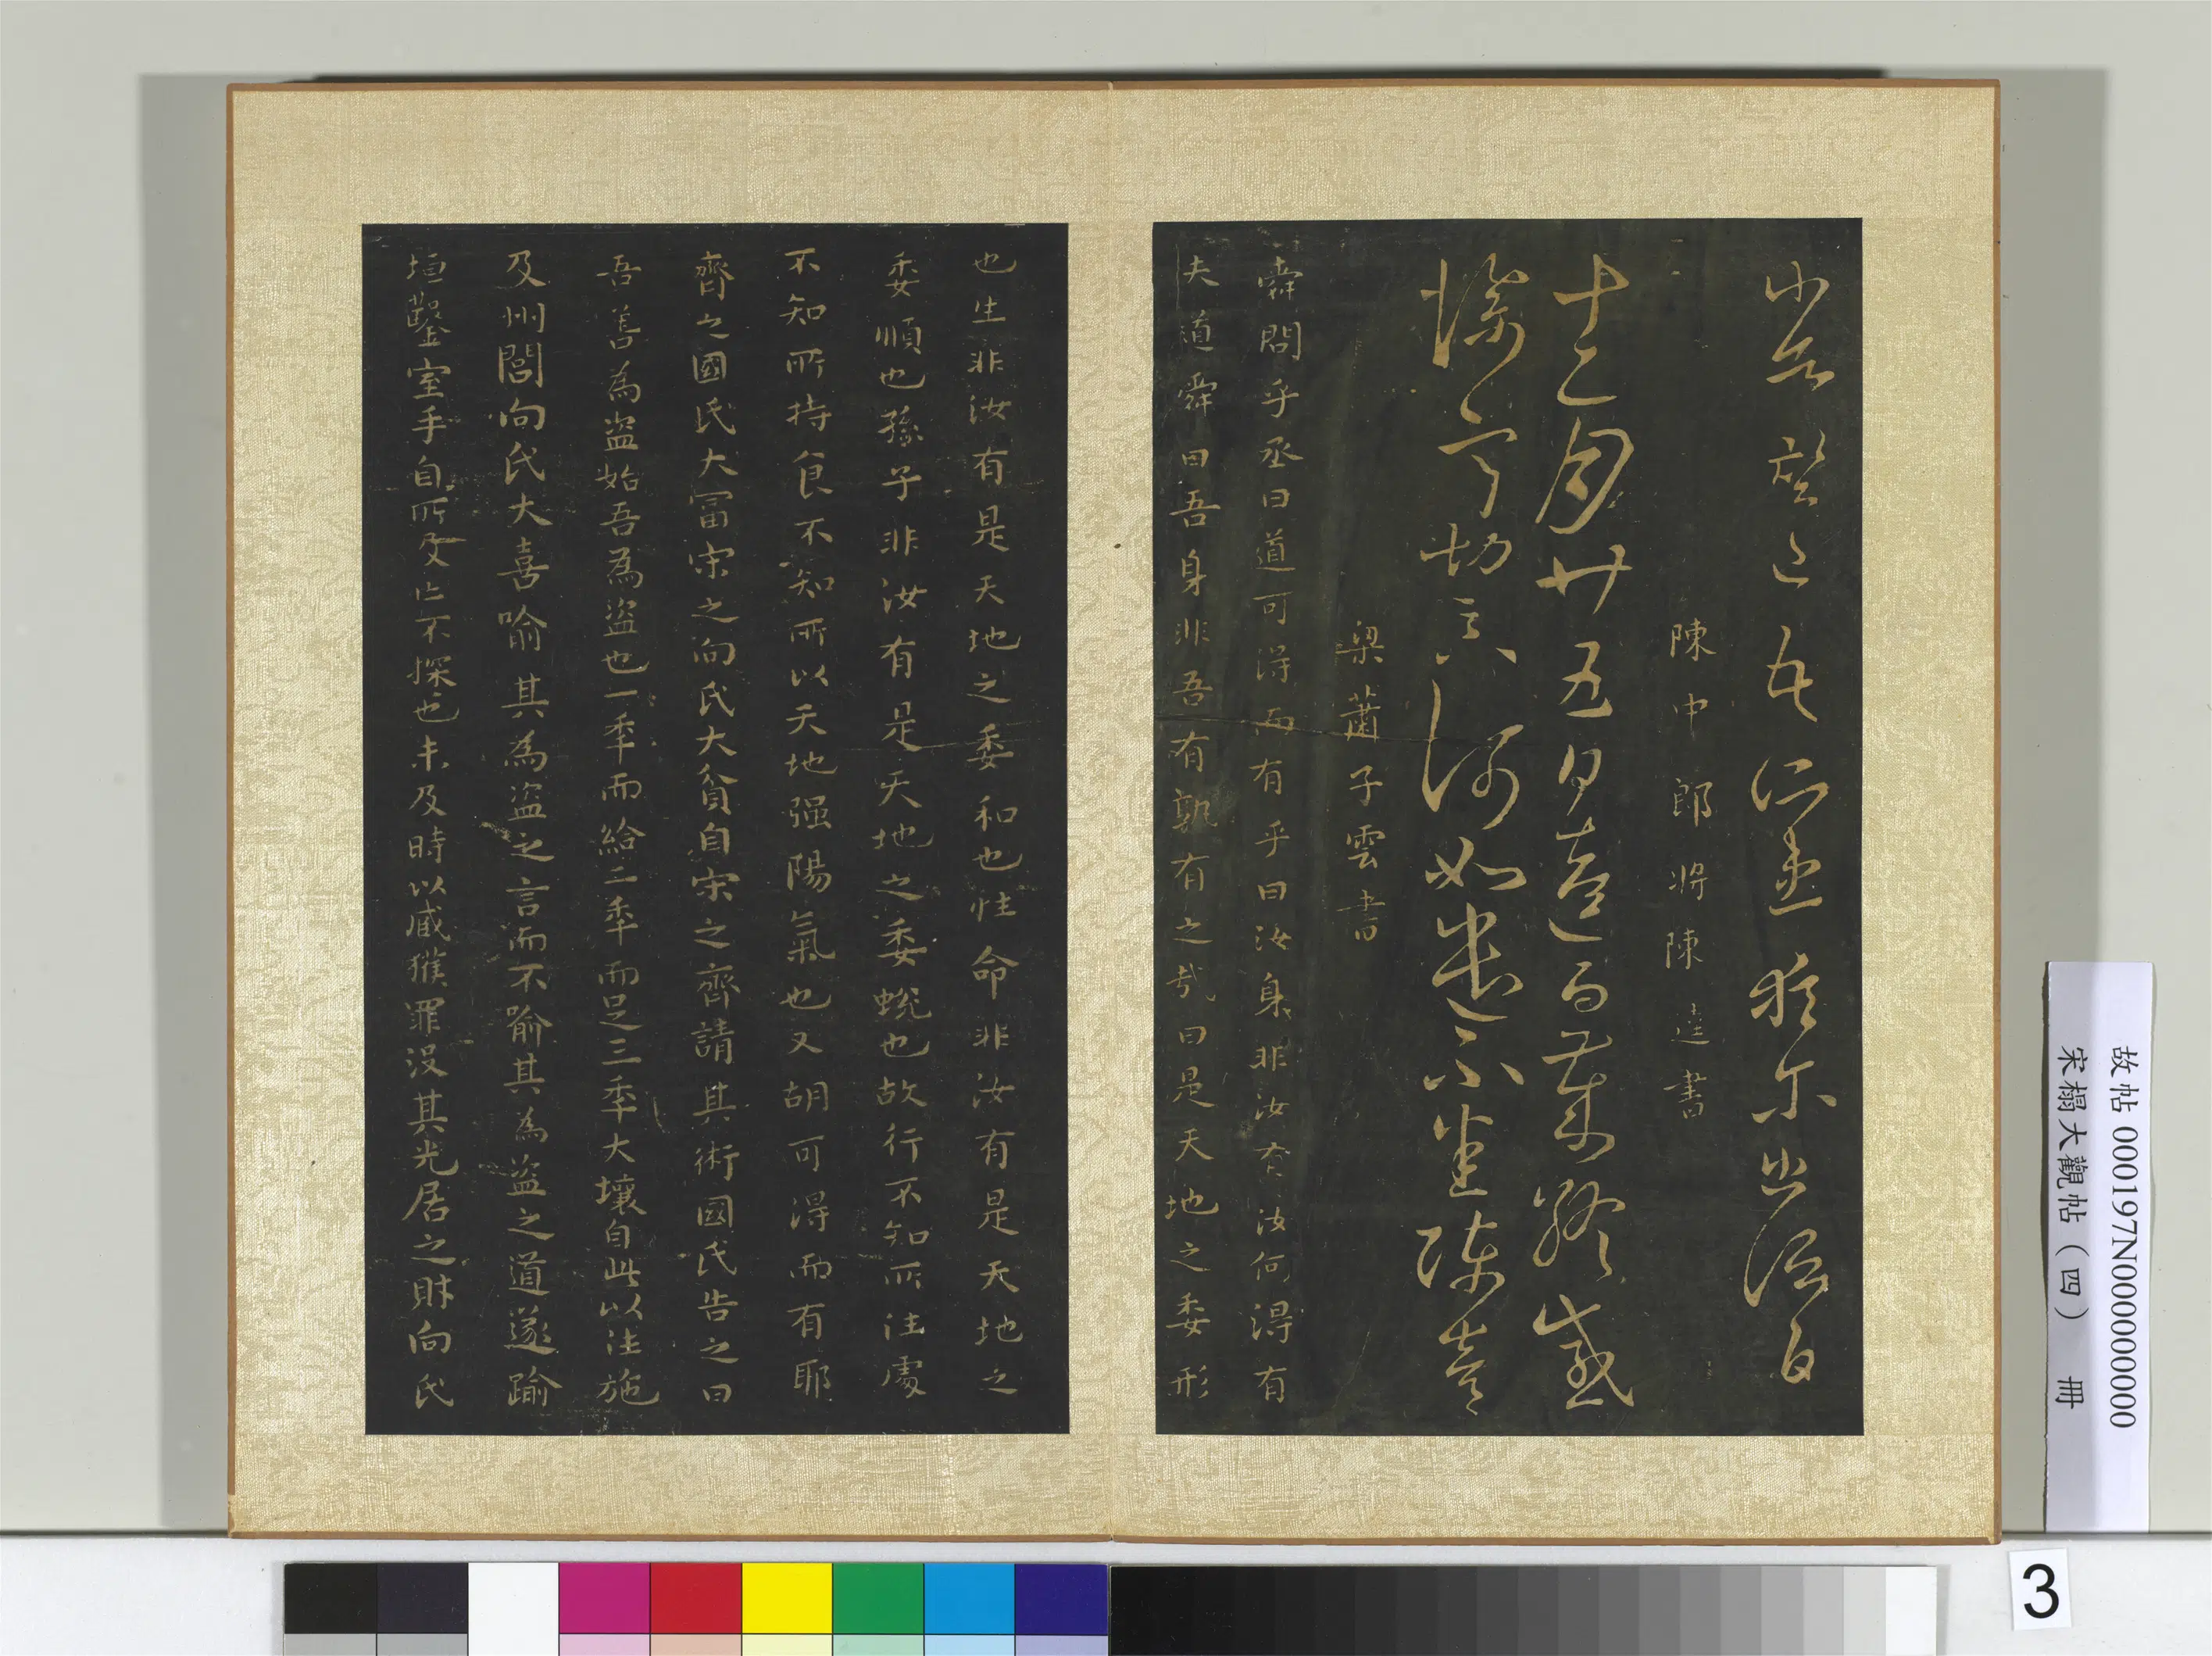 陳中郎將陳逵書
十二月廿五日逵白歲終感
深切何如
梁蕭子雲書
舜問乎丞曰道可得而有乎曰汝身非汝有汝何得有
夫道舜曰吾身非吾有孰有之哉曰是天地之委形
也生非汝有是天地之委和也性命非汝有是天地之
委順也孫子非汝有是天地之委蛻也故行不知所往處
不知所持食不知所以天地强陽氣也又胡可得而有耶
齊之國氏大冨宋之向氏大貧自宋之齊請其術國氏告之曰
吾善為盜始吾為盜也一秊而給二秊而足三秊大壤自此以往施
及州閭向氏大喜喻其為盜之言而不喻其為盜之道遂踰
垣鑿室手自所及亡不探也未及時以贓獲罪沒其先居之財向氏
故帖 000197N000000000
宋榻大觀帖（四） 冊
3